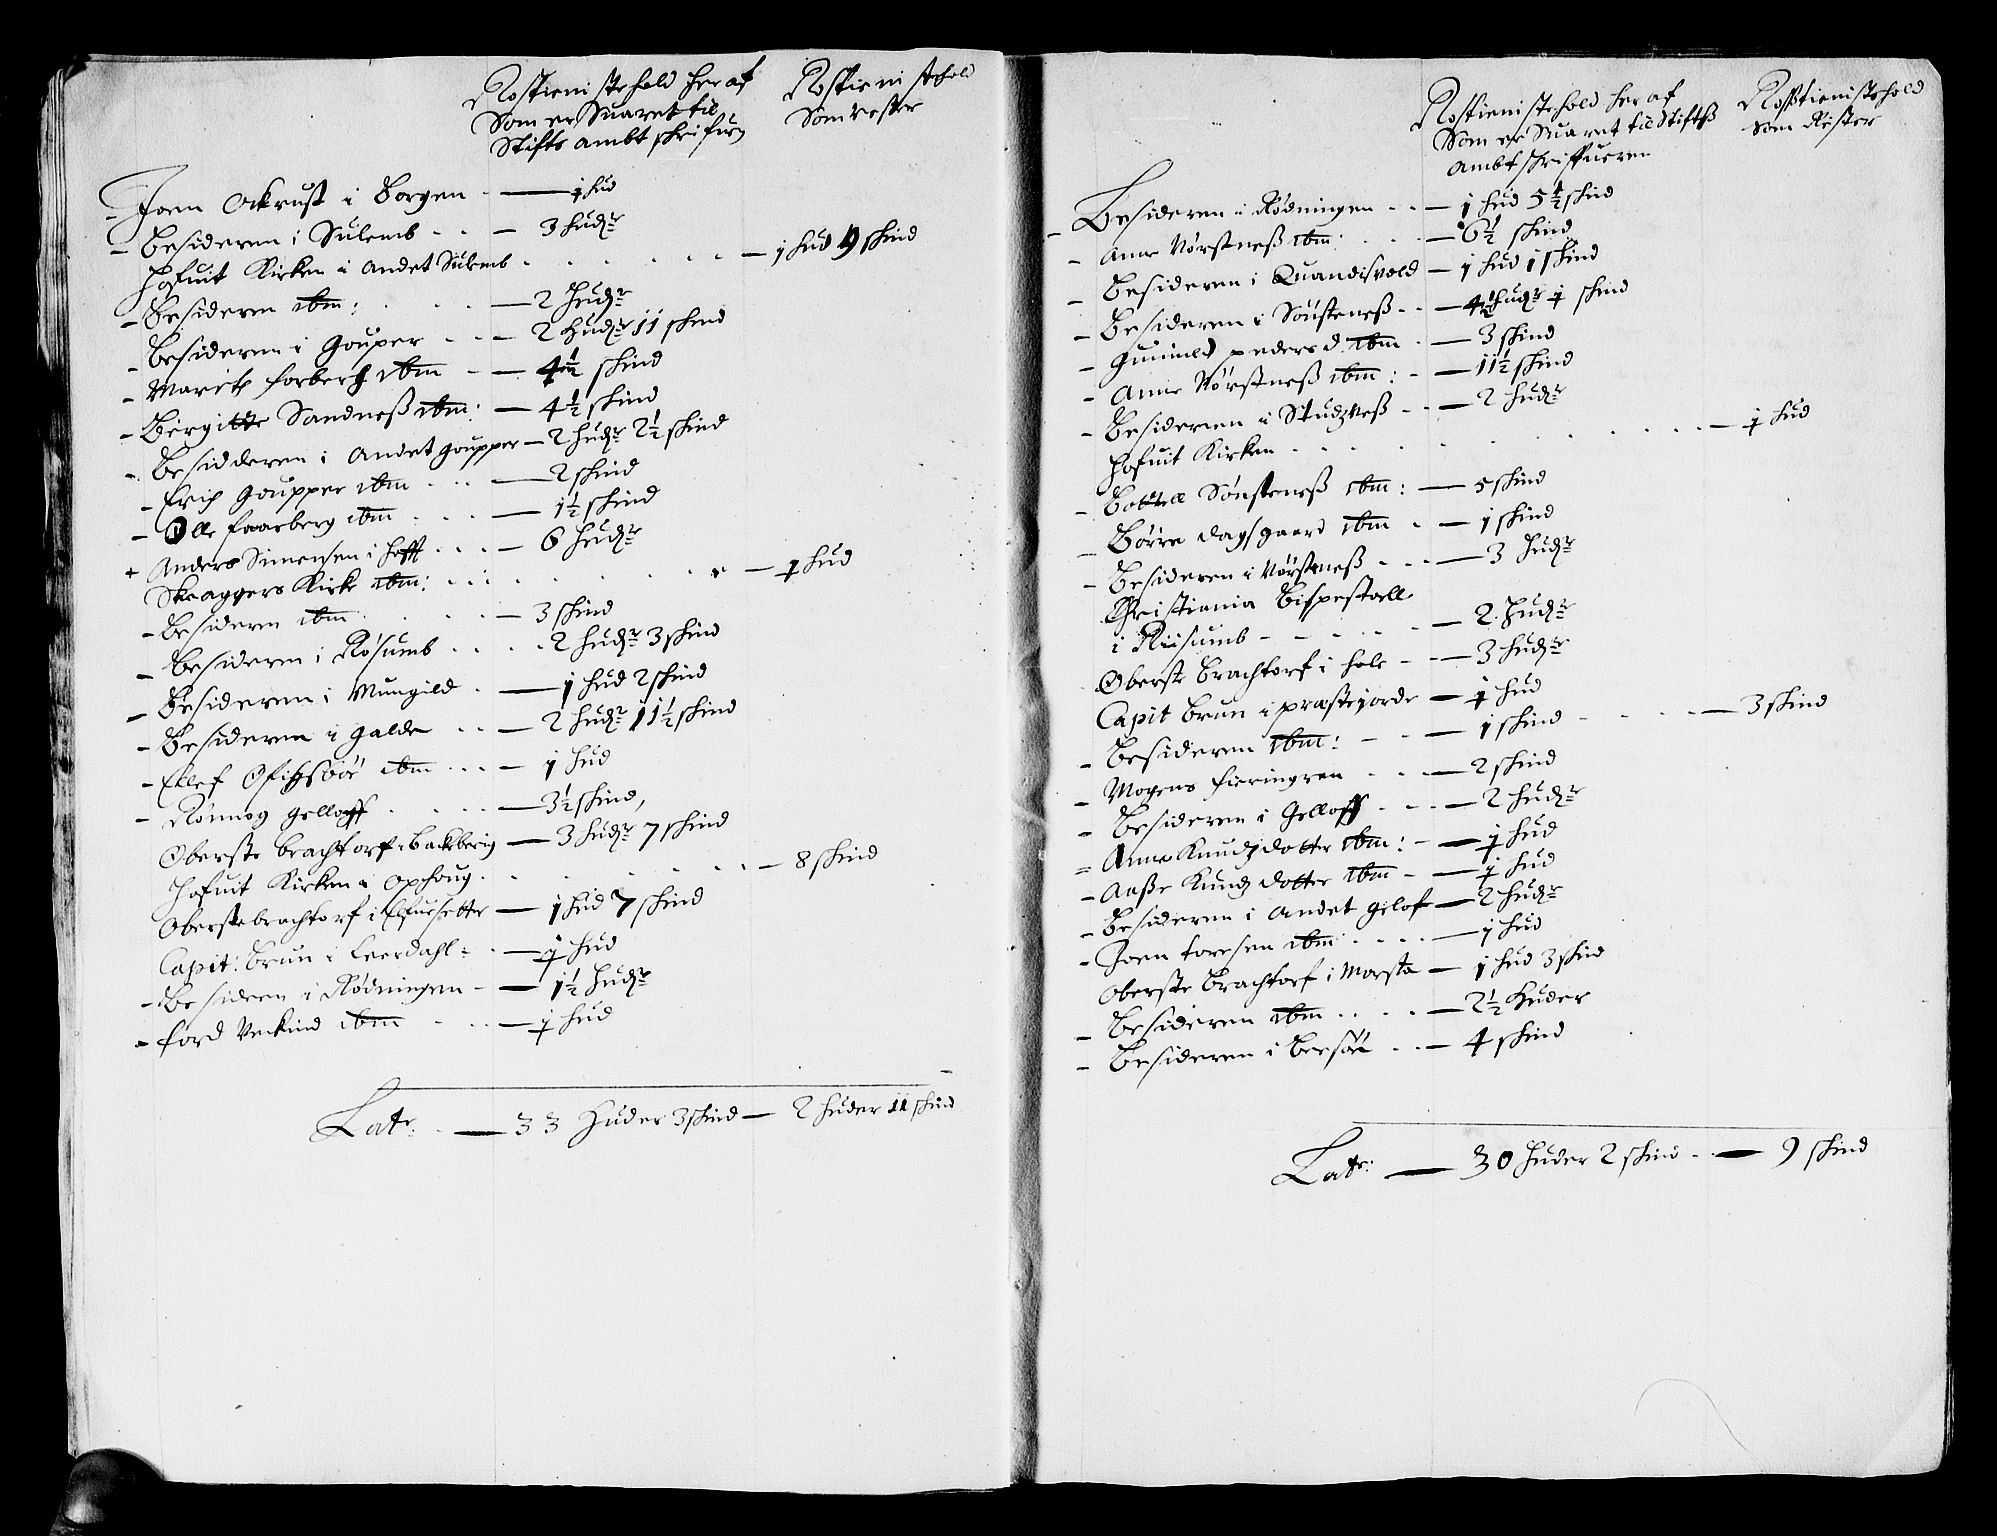 Rostienistehold her af
Som er Suaret til
Stifts ambt schrifuer
Rostienistehold
Som rester
Joen Ockrust i Borgen - 1 hud
- Besideren i Sulemb - 3 hudr
- Hofuit Kirken i Andet Sulemb - 1 hud 9 skind
- Besideren ibm: - 2 hudr
- Besideren i Gouper - 2 hudr 11 skind
- Marite forberg ibm - 4½ skind
- Birgitte Sandness ibm: - 4½ skind
- Besidderen i Andet goupper - 2 hudr 2½ skind
- Erich Goupper ibm - 2 skind
- Olle faarberg ibm - 1½ skind
+ Anders Simensen i Hoff - 6 hudr
Skeaggers Kirke ibm: - 1 hud
- Besideren ibm - 3 skind
- Besideren i Røsumb - 2 hudr 3 skind
- Besideren i Mungild - 1 hud 2 skind
- Besideren i Galde - 2 hudr 11½ skind
- Ellef ibm - 1 hud
- Rønnog Gelloff - 3½ skind,
Oberste Brachtorf i Backberig - 3 hudr 7 skind
Hofuit Kirken i Ophoug - 8 skind
Oberste brachtorf i Elfuesette - 1 hud 7 skind
Capit: Brun i Leerdahl: - 1 hud
- Besideren i Rødningen - 1½ hudr
- ford Veckind ibm - 1 hud
Latr: - 33 Huder 3 skind - 2 huder 11 skind
Rostienistehold her af
Som er Suaret til Stiftss
Ambtschriffueren
Rosstienistehold
Som Rester
- Besideren i Rødningen - 1 hud 5½ skind
- Anne Nørstness ibm: - 6½ skind
- Besideren i Quandisvold - 1 hud 1 skind
- Besideren i Sønsteness - 4½ hudr 1 skind
- Gunnild peders d. ibm - 3 skind
- Anne Nørstness ibm: - 11½ skind
- Besideren i - 2 hudr
Hofuit Kirken - 1 hud
- Bottell Sønsteness ibm: - 5 skind
- Børre dagsgaard ibm - 1 skind
- Besideren i Nørstness - 3 hudr
Christiania Bispestoell
i Riisumb - 2 hudr
Oberste Brachtorf i hole - 3 hudr
Capit Brun i præstejorde - 1 hud
- Besideren ibm: - 1 skind - 3 skind
- Mogens fieringren - 2 skind
- Besideren i Gelloff - 2 hudr
= Anne Knudz dotter ibm: - 1 hud
- Aasse Knudz dotter ibm - 1 hud
- Besideren i Andet Gelof - 2 hudr
- Joen toresen ibm - 1 hud
Oberste Brachtorf i Morsta - 1 hud 3 skind
- Besideren ibm - 2½ huder
- Besideren i - 4 skind
Latr: - 30 huder 2 skind - 9 skind